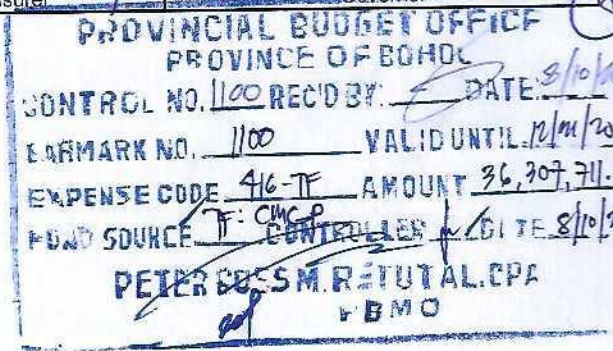 PROVINCIAL BUDGET OFFICE
PROVINCE OF BOHOL
CONTROL NO. 1100 REC'D BY. DATE. 8/10/
EARMARK NO. 1100 VALID UNTIL. 12/31/20
EXPENSE CODE 416-TF AMOUNT 36,307,711.
FUND SOURCE TF: CONTROLLER DATE 8/10/2
M. RETUTAL.CPA
PBMO